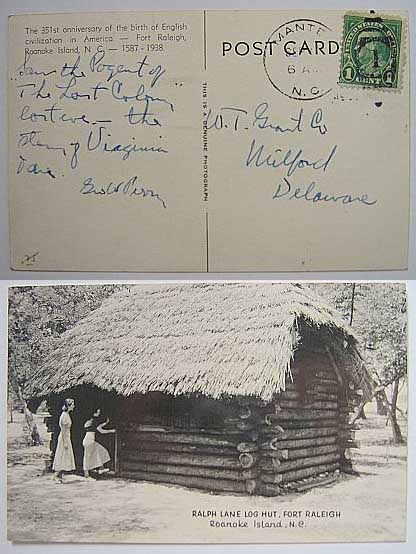 The 351st anniversary of the birth of English
civilization in America — Fort Raleigh,
Roanoke Island, N. C. — 1587 - 1938.
POST CARD
MANTE
6 A
N.C.
1 CENT 1
THIS IS A GENUINE PHOTOGRAPH
Saw the Pagent of
The Lost Colony
last eve. — the
story of Viaginia
Dare.
Geo W Perry
W. T. Grant Co
Milford
Delaware
25
RALPH LANE LOG HUT, FORT RALEIGH
Roanoke Island, N.C.